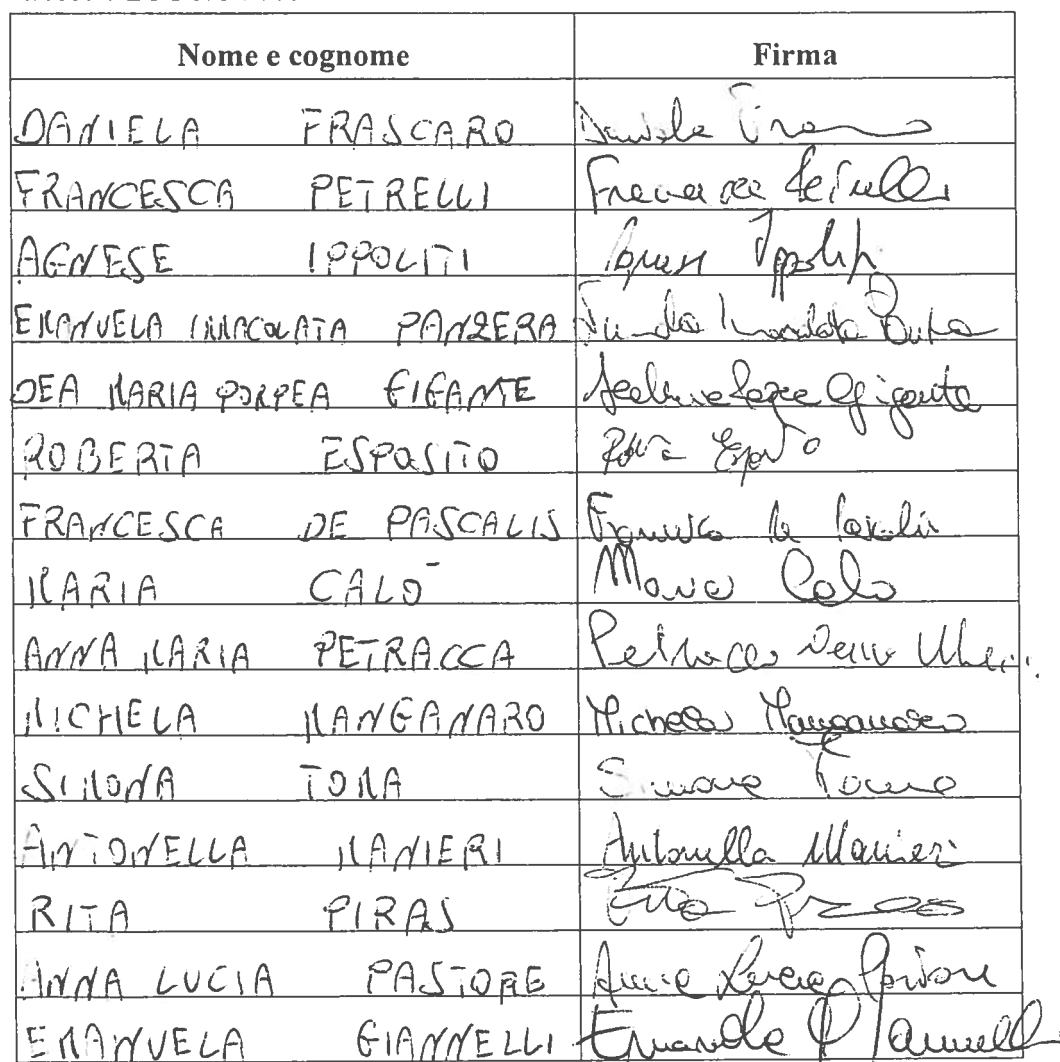 Nome e cognome Firma
DANIELA FRASCARO Daniela
FRANCESCA PETRELLI Francesca Petrelli
AGNESE IPPOLITI Agnese Ippoliti
EMANUELA IMMACOLATA PANZERA Immacolata
DEA MARIA POMPEA GIGANTE Gigante
ROBERTA ESPOSITO
FRANCESCA DE PASCALIS Francesca De Pascalis
MARIA CALO' Maria Calo
ANNA MARIA PETRACCA Petracca
MICHELA MANGANARO Michela Manganaro
SIMONA TOMA Simona Toma
ANTONELLA MANIERI Antonella Manieri
RITA PIRAS Rita Piras
ANNA LUCIA PASTORE Anna Lucia Pastore
EMANUELA GIANNELLI Emanuela Giannelli